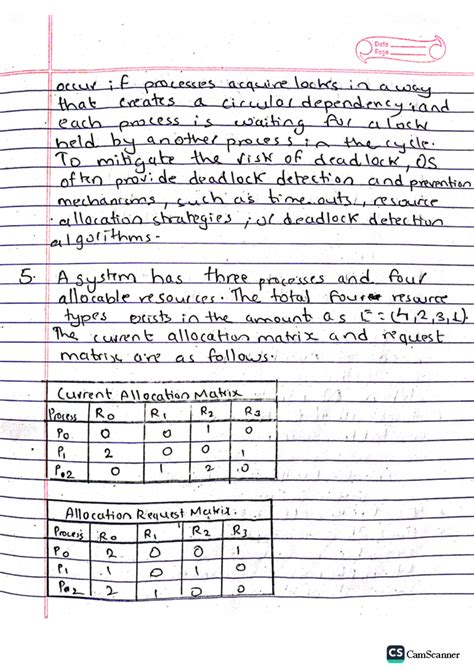 Date
Page
occur if processes acquire locks in a way
that creates a circular dependency, and
each process is waiting for a lock
held by another process in the cycle.
To mitigate the risk of deadlock, OS
often provide deadlock detection and prevention
mechanisms, such as time-outs, resource
allocation strategies, or deadlock detection
algorithms.
5. A system has three processes and four
allocable resources. The total four resource
types exists in the amount as E = (4, 2, 3, 1).
The current allocation matrix and request
matrix are as follows.
Current Allocation Matrix
Process R0 R1 R2 R3
P0 0 0 1 0
P1 2 0 0 1
P2 0 1 2 0
Allocation Request Matrix.
Process R0 R1 R2 R3
P0 2 0 0 1
P1 1 0 1 0
P2 2 1 0 0
CS CamScanner